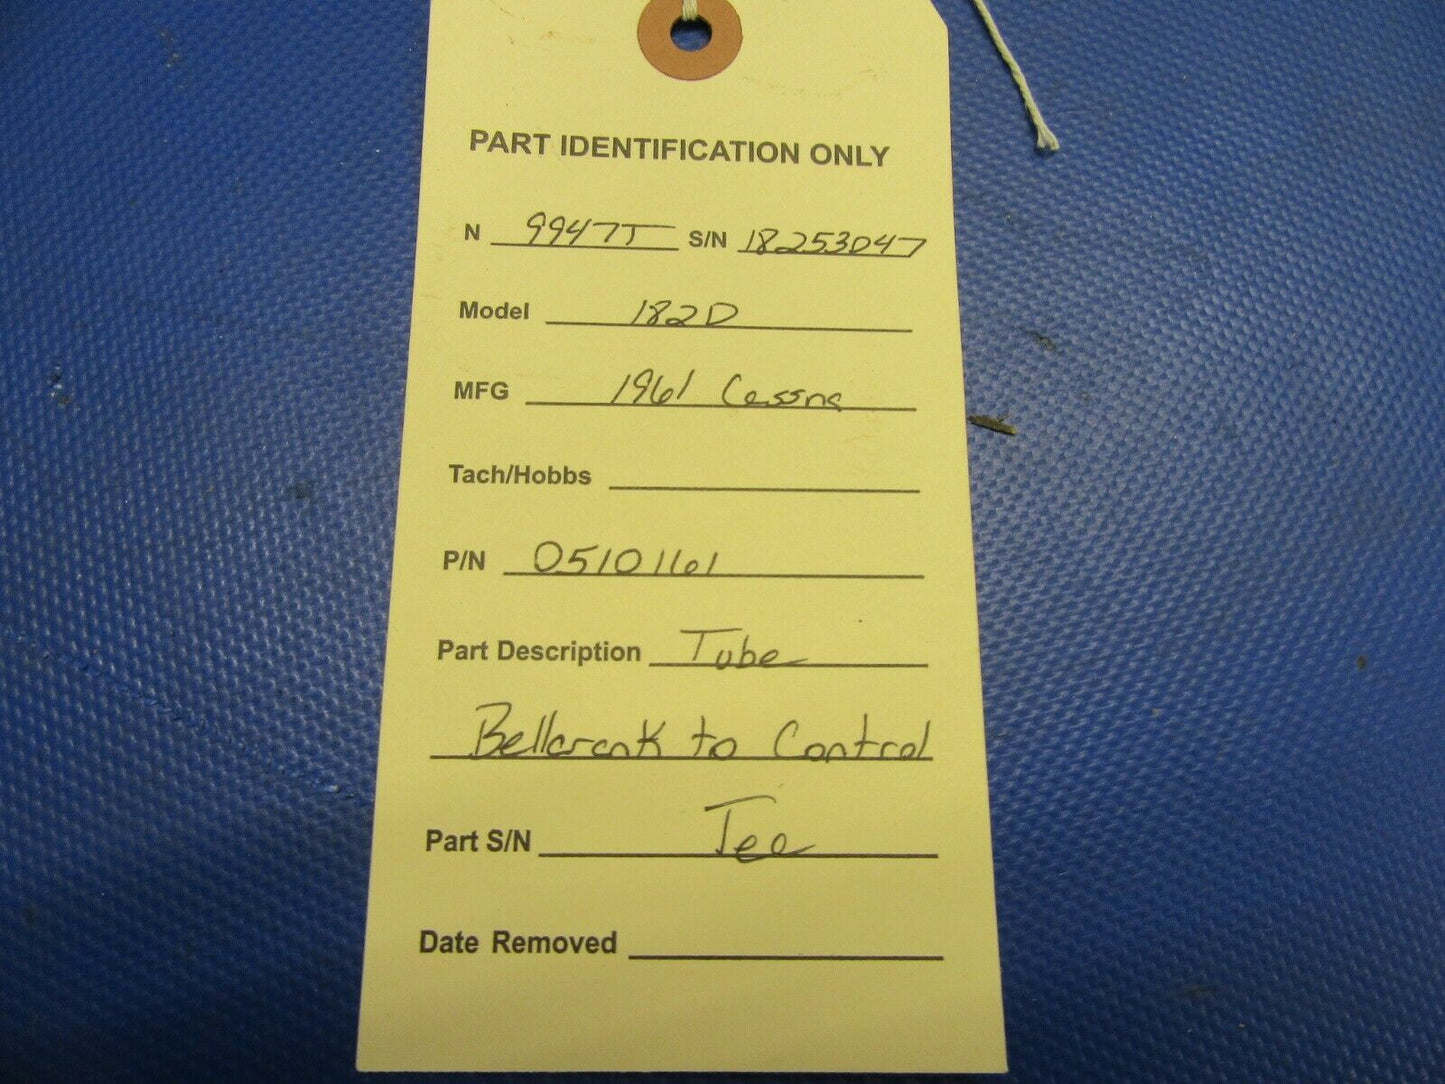 PART IDENTIFICATION ONLY
N 9947T S/N 18253047
Model 182D
MFG 1961 Cessna
Tach/Hobbs
P/N 05101161
Part Description Tube
Bellcrank to Control
Part S/N Tee
Date Removed